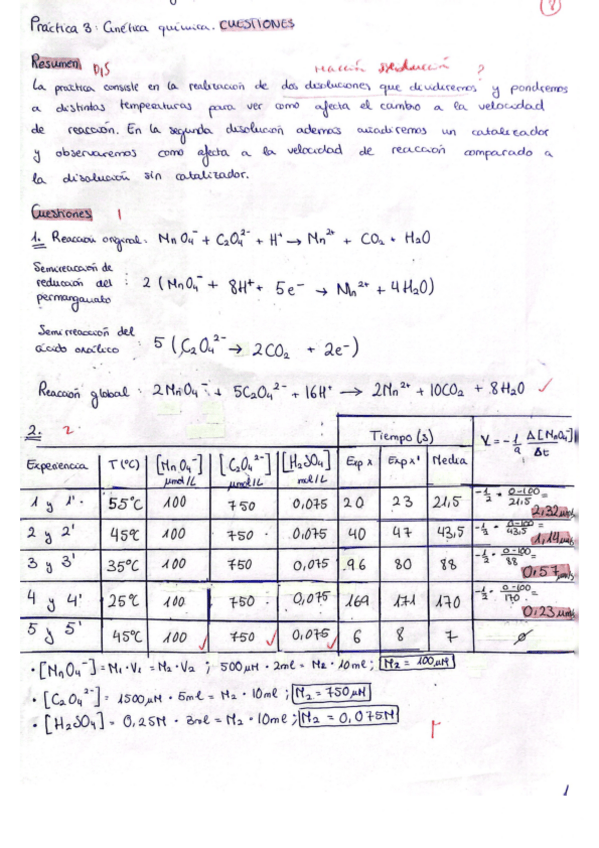 Práctica 3: Cinética química. CUESTIONES
Resumen
reacción
?
La práctica consiste en la realización de dos disoluciones que dividiremos y pondremos
a distintas temperaturas para ver como afecta el cambio a la velocidad
de reacción. En la segunda disolución ademas añadiremos un catalizador
y observaremos como afecta a la velocidad de reacción comparado a
la disolución sin catalizador.
Cuestiones 1
1. Reacción original: MnO4⁻ + C2O4²⁻ + H⁺ → Mn²⁺ + CO2 + H2O
Semireacción de reducción del permanganato : 2 (MnO4⁻ + 8H⁺ + 5e⁻ → Mn²⁺ + 4H2O)
Semirreacción del ácido oxálico : 5 (C2O4²⁻ → 2CO2 + 2e⁻)
Reacción global : 2MnO4⁻ + 5C2O4²⁻ + 16H⁺ → 2Mn²⁺ + 10CO2 + 8H2O ✓
2. 2.
Tiempo (s) V = -1/a Δ[MnO4⁻]/Δt
Experiencia T(ºC) [MnO4⁻] μmol/L [C2O4²⁻] μmol/L [H2SO4] mol/L Exp x Exp x' Media
1 y 1' 55ºC 100 750 0,075 20 23 21,5 -1/2 · 0-100/21,5 = 2,32
2 y 2' 45ºC 100 750 0,075 40 47 43,5 -1/2 · 0-100/43,5 = 1,14
3 y 3' 35ºC 100 750 0,075 96 80 88 -1/2 · 0-100/88 = 0,57
4 y 4' 25ºC 100 750 0,075 169 171 170 -1/2 · 0-100/170 = 0,23
5 y 5' 45ºC 100 750 0,075 6 8 7 ø
• [MnO4⁻] = M1 · V1 = M2 · V2 ; 500μM · 2ml = M2 · 10ml ; M2 = 100μM
• [C2O4²⁻] = 1500μM · 5ml = M2 · 10ml ; M2 = 750μM
• [H2SO4] = 0,25M · 3ml = M2 · 10ml ; M2 = 0,075M
1